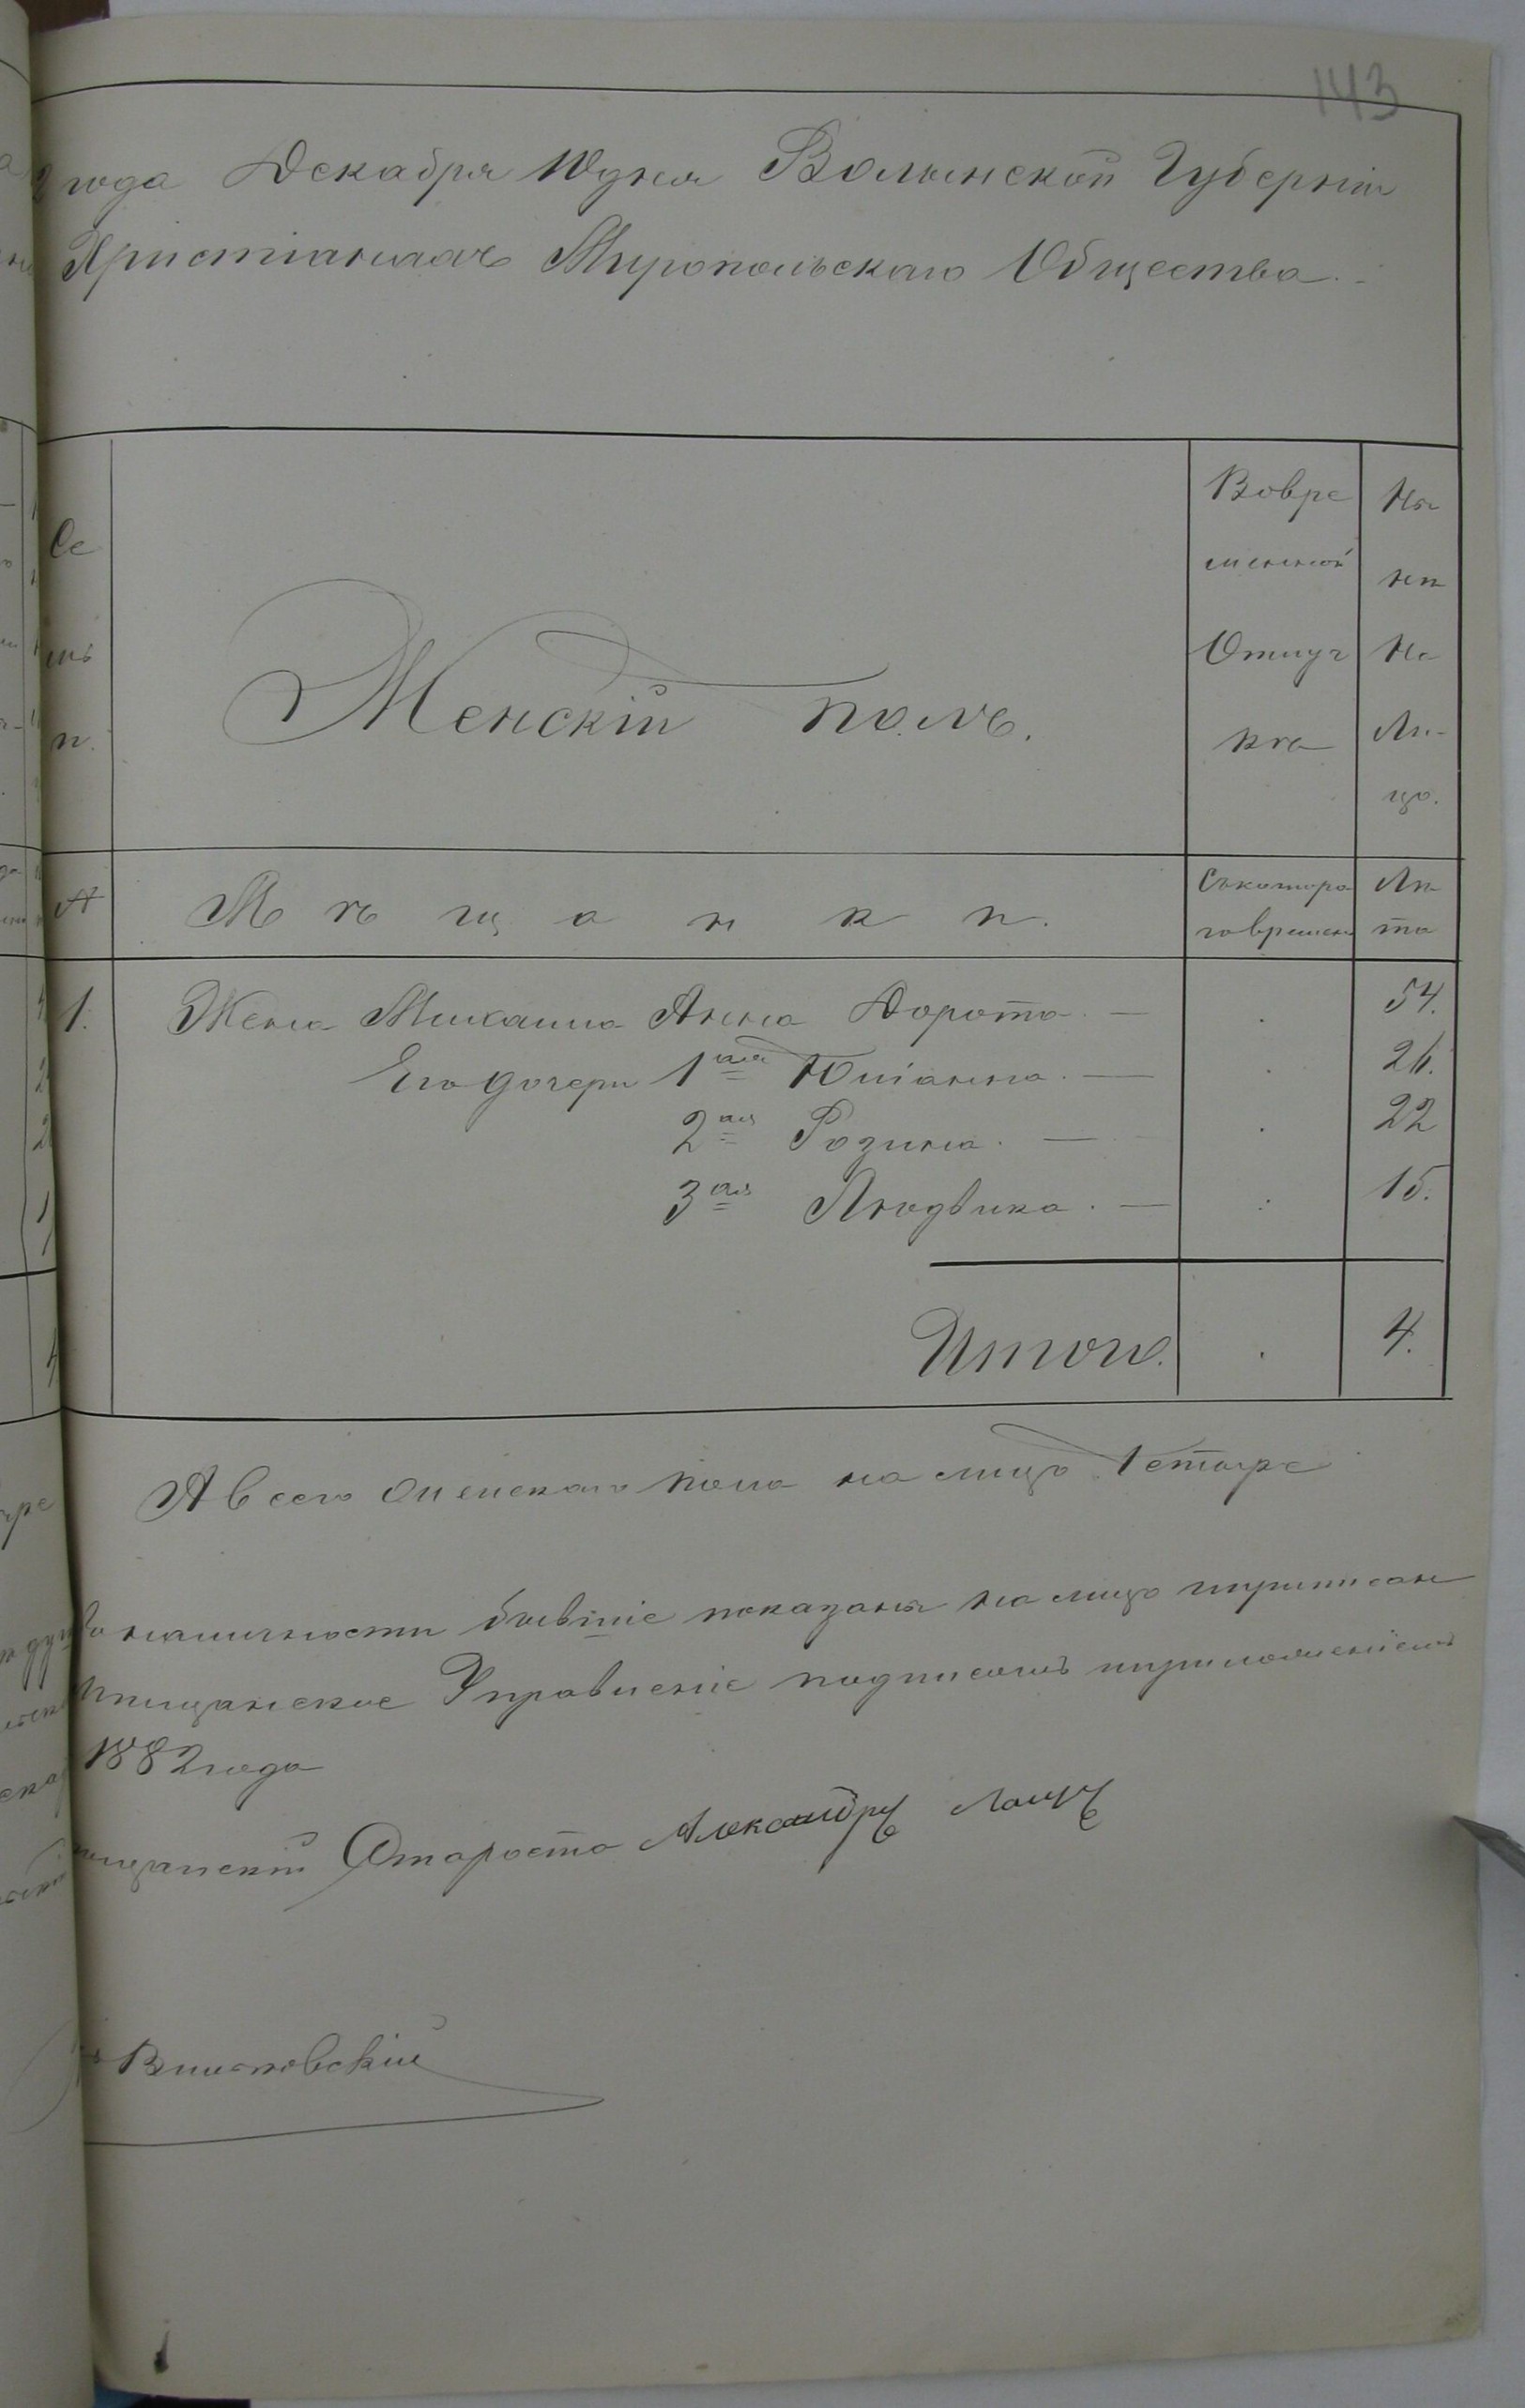 143
2 года Декабря 10 дня Волынской Губерніи
Христіанмъ Миропольскаго Общества.
Се
мь
и.
Женскій полъ.
Вовре
менной
Отлуч
кѣ
Ны
нѣ
На
Ли-
цо.
А
Мѣщанки.
Съкотора
говремени
Лѣ
та
1. Жена Михаила Анна Дорота. — . 54.
Его дочери 1ая Юліанна. — . 26.
2ая Розина. — . 22
3ая Людвика. — . 15.
Итого. . 4.
А всего Женскаго пола на лицо Четыре
наличности бывшіе показаны на лицо прописан
Мѣщанское Управленіе подписомъ приложеніемъ
1882 года
мѣщанскій Староста Александръ